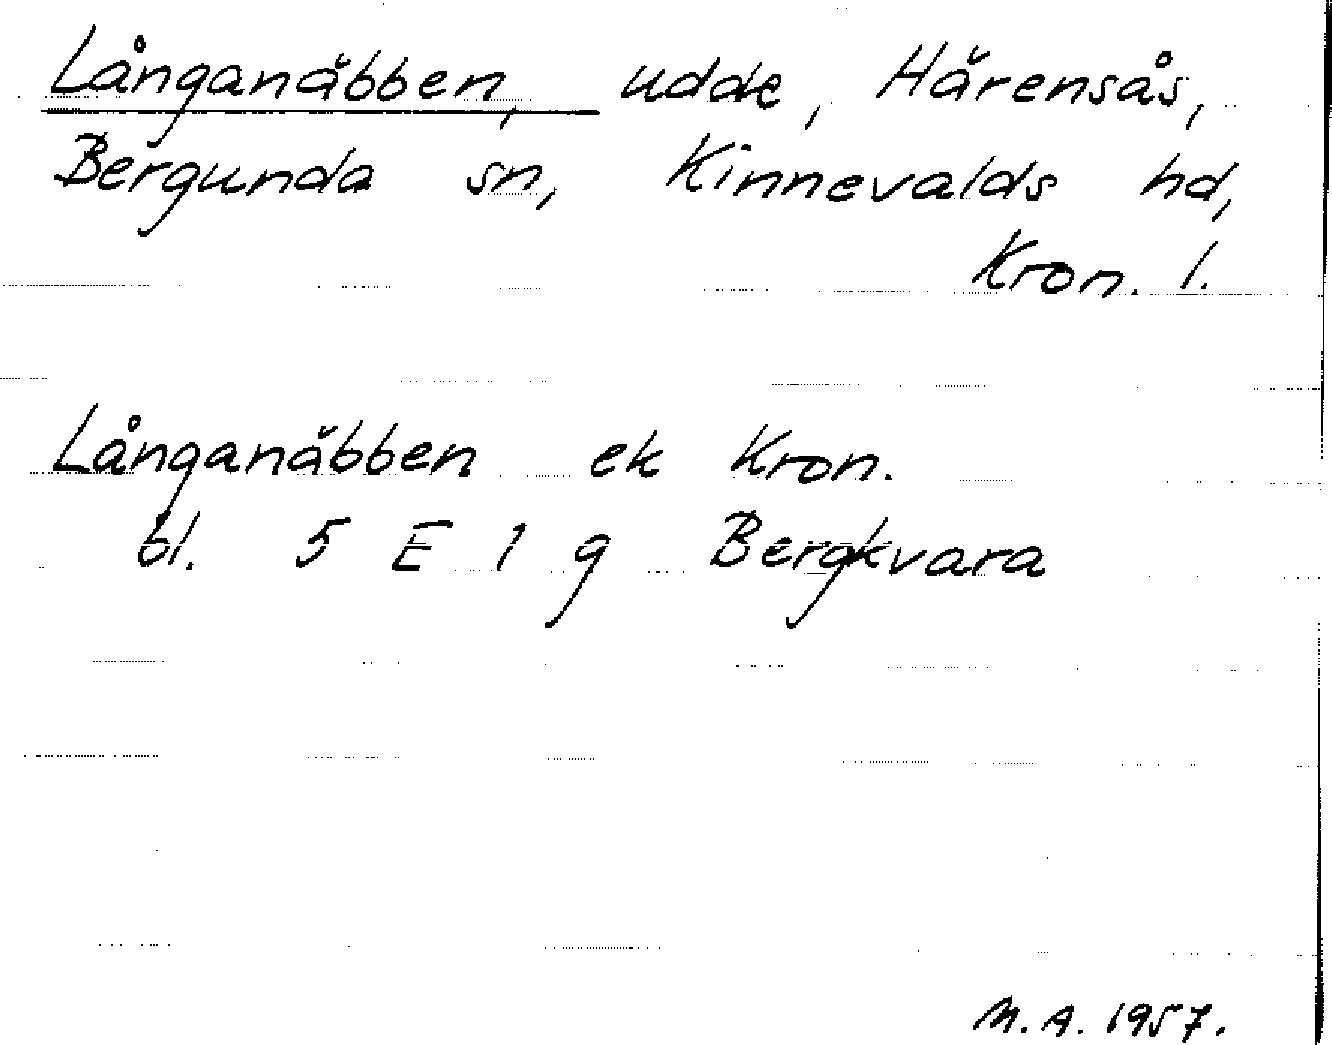 Långanäbben, udde, Härensås,
Bergunda sn, Kinnevalds hd,
Kron. l.
Långanäbben ek Kron.
bl. 5 E 1 g Bergkvara
M.A. 1957.